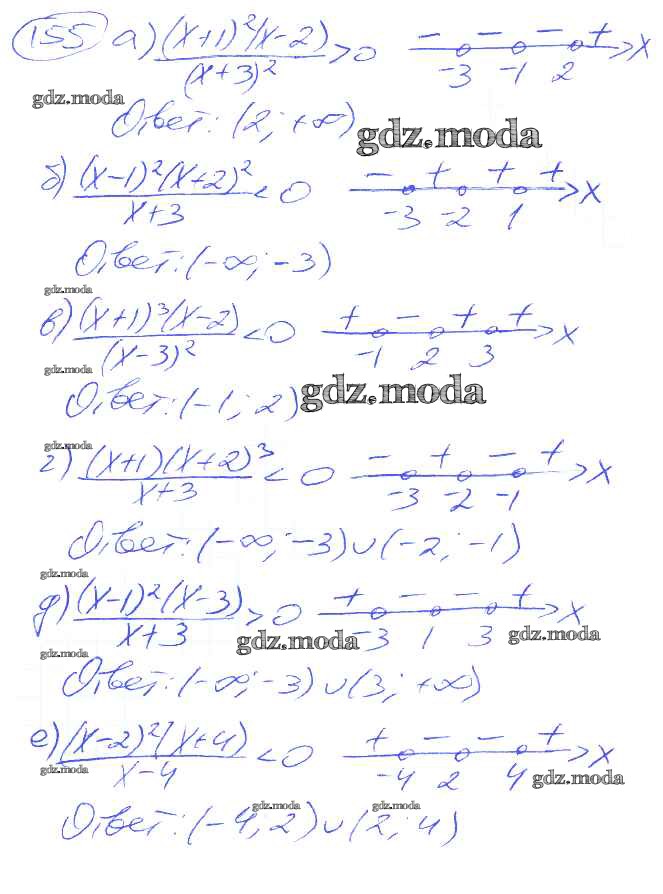 155 а) (x+1)²(x-2)/(x+3)² > 0 - - - + -3 -1 2 x
gdz.moda
Ответ: (2; +∞)
gdz.moda
б) (x-1)²(x+2)²/x+3 < 0 - + + + -3 -2 1 x
Ответ: (-∞; -3)
gdz.moda
в) (x+1)³(x-2)/(x-3)² < 0 + - + + -1 2 3 x
gdz.moda
Ответ: (-1; 2)
gdz.moda
gdz.moda
г) (x+1)(x+2)³/x+3 < 0 - + - + -3 -2 -1 x
Ответ: (-∞; -3)∪(-2; -1)
gdz.moda
д) (x-1)²(x-3)/x+3 > 0 + - - + -3 1 3 x
gdz.moda gdz.moda gdz.moda
Ответ: (-∞; -3)∪(3; +∞)
е) (x-2)²(x+4)/x-4 < 0 + - - + -4 2 4 x
gdz.moda gdz.moda
gdz.moda gdz.moda
Ответ: (-4; 2)∪(2; 4)